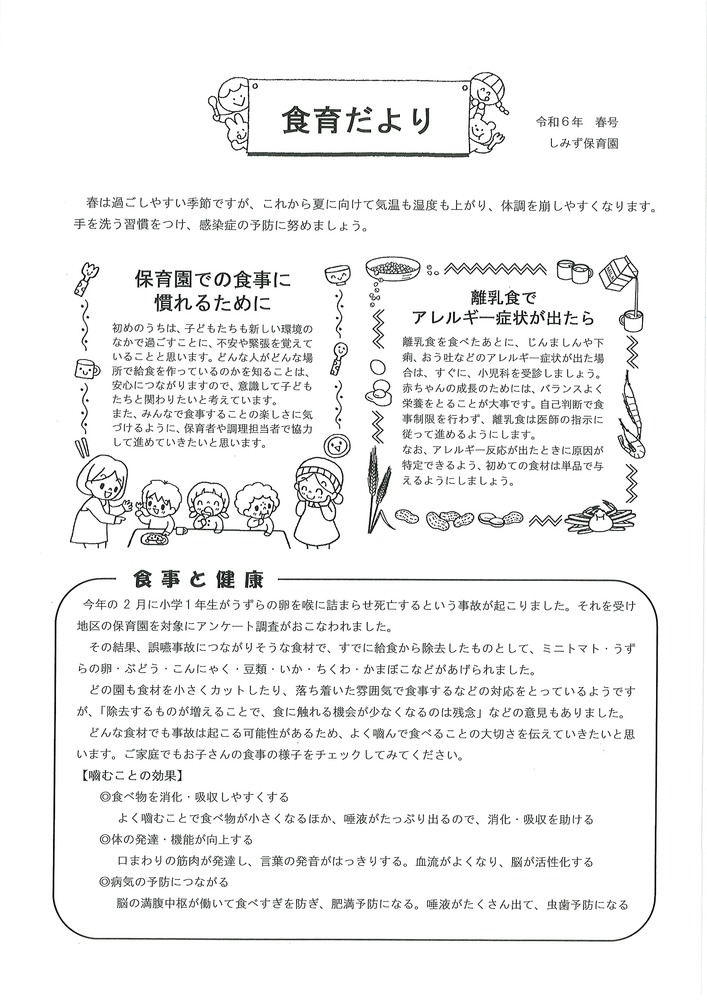 食育だより
令和６年　春号
しみず保育園
春は過ごしやすい季節ですが、これから夏に向けて気温も湿度も上がり、体調を崩しやすくなります。
手を洗う習慣をつけ、感染症の予防に努めましょう。
保育園での食事に
慣れるために
初めのうちは、子どもたちも新しい環境の
なかで過ごすことに、不安や緊張を覚えて
いることと思います。どんな人がどんな場
所で給食を作っているのかを知ることは、
安心につながりますので、意識して子ども
たちと関わりたいと考えています。
また、みんなで食事することの楽しさに気
づけるように、保育者や調理担当者で協力
して進めていきたいと思います。
離乳食で
アレルギー症状が出たら
離乳食を食べたあとに、じんましんや下
痢、おう吐などのアレルギー症状が出た場
合は、すぐに、小児科を受診しましょう。
赤ちゃんの成長のためには、バランスよく
栄養をとることが大事です。自己判断で食
事制限を行わず、離乳食は医師の指示に
従って進めるようにします。
なお、アレルギー反応が出たときに原因が
特定できるよう、初めての食材は単品で与
えるようにしましょう。
食事と健康
今年の２月に小学１年生がうずらの卵を喉に詰まらせ死亡するという事故が起こりました。それを受け
地区の保育園を対象にアンケート調査がおこなわれました。
その結果、誤嚥事故につながりそうな食材で、すでに給食から除去したものとして、ミニトマト・うず
らの卵・ぶどう・こんにゃく・豆類・いか・ちくわ・かまぼこなどがあげられました。
どの園も食材を小さくカットしたり、落ち着いた雰囲気で食事するなどの対応をとっているようです
が、「除去するものが増えることで、食に触れる機会が少なくなるのは残念」などの意見もありました。
どんな食材でも事故は起こる可能性があるため、よく嚙んで食べることの大切さを伝えていきたいと思
います。ご家庭でもお子さんの食事の様子をチェックしてみてください。
【嚙むことの効果】
◎食べ物を消化・吸収しやすくする
よく嚙むことで食べ物が小さくなるほか、唾液がたっぷり出るので、消化・吸収を助ける
◎体の発達・機能が向上する
口まわりの筋肉が発達し、言葉の発音がはっきりする。血流がよくなり、脳が活性化する
◎病気の予防につながる
脳の満腹中枢が働いて食べすぎを防ぎ、肥満予防になる。唾液がたくさん出て、虫歯予防になる